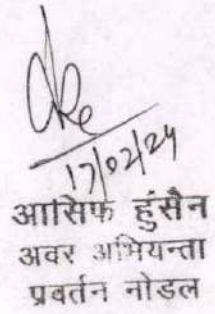 17/02/24
आसिफ हुसैन
अवर अभियन्ता
प्रवर्तन नोडल